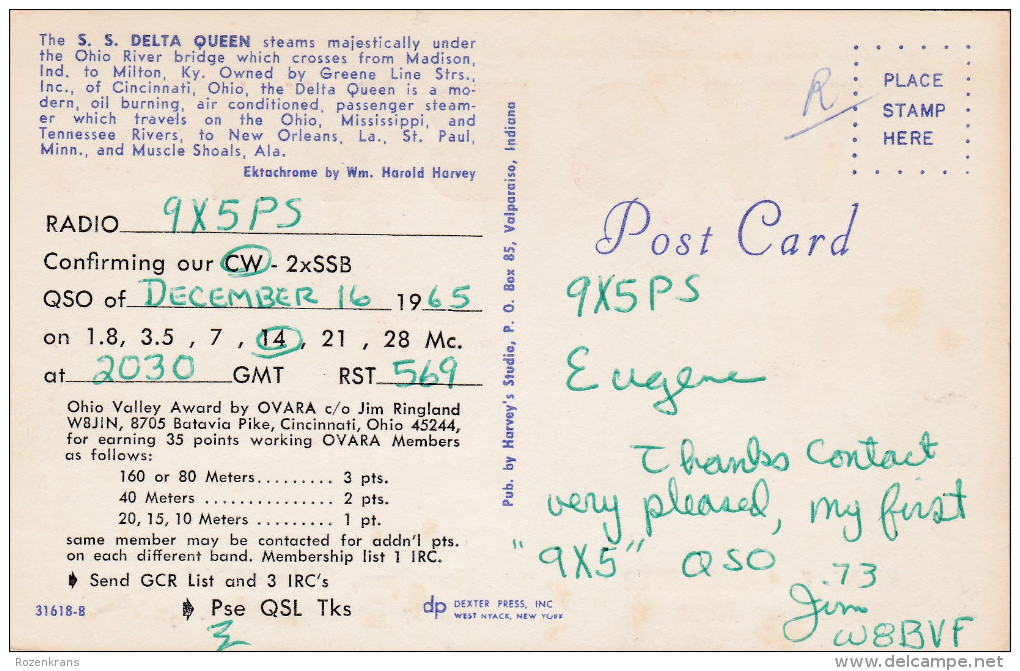 The S. S. DELTA QUEEN steams majestically under
the Ohio River bridge which crosses from Madison,
Ind. to Milton, Ky. Owned by Greene Line Strs.,
Inc., of Cincinnati, Ohio, the Delta Queen is a mo-
dern, oil burning, air conditioned, passenger steam-
er which travels on the Ohio, Mississippi, and
Tennessee Rivers, to New Orleans, La., St. Paul,
Minn., and Muscle Shoals, Ala.
Ektachrome by Wm. Harold Harvey
RADIO 9X5PS
Confirming our CW - 2xSSB
QSO of DECEMBER 16 1965
on 1.8, 3.5 , 7 , 14 , 21 , 28 Mc.
at 2030 GMT RST 569
Ohio Valley Award by OVARA c/o Jim Ringland
W8JIN, 8705 Batavia Pike, Cincinnati, Ohio 45244,
for earning 35 points working OVARA Members
as follows:
160 or 80 Meters......... 3 pts.
40 Meters ............... 2 pts.
20, 15, 10 Meters ......... 1 pt.
same member may be contacted for addn'l pts.
on each different band. Membership list 1 IRC.
Send GCR List and 3 IRC's
Pse QSL Tks
31618-B
Pub. by Harvey's Studio, P. O. Box 85, Valparaiso, Indiana
dp DEXTER PRESS, INC
WEST NYACK, NEW YORK
R
PLACE
STAMP
HERE
Post Card
9X5PS
Eugene
Thanks contact
very pleased, my first
"9X5" QSO
73
Jim
W8BVF
Rozenkrans
www.delcampe.net